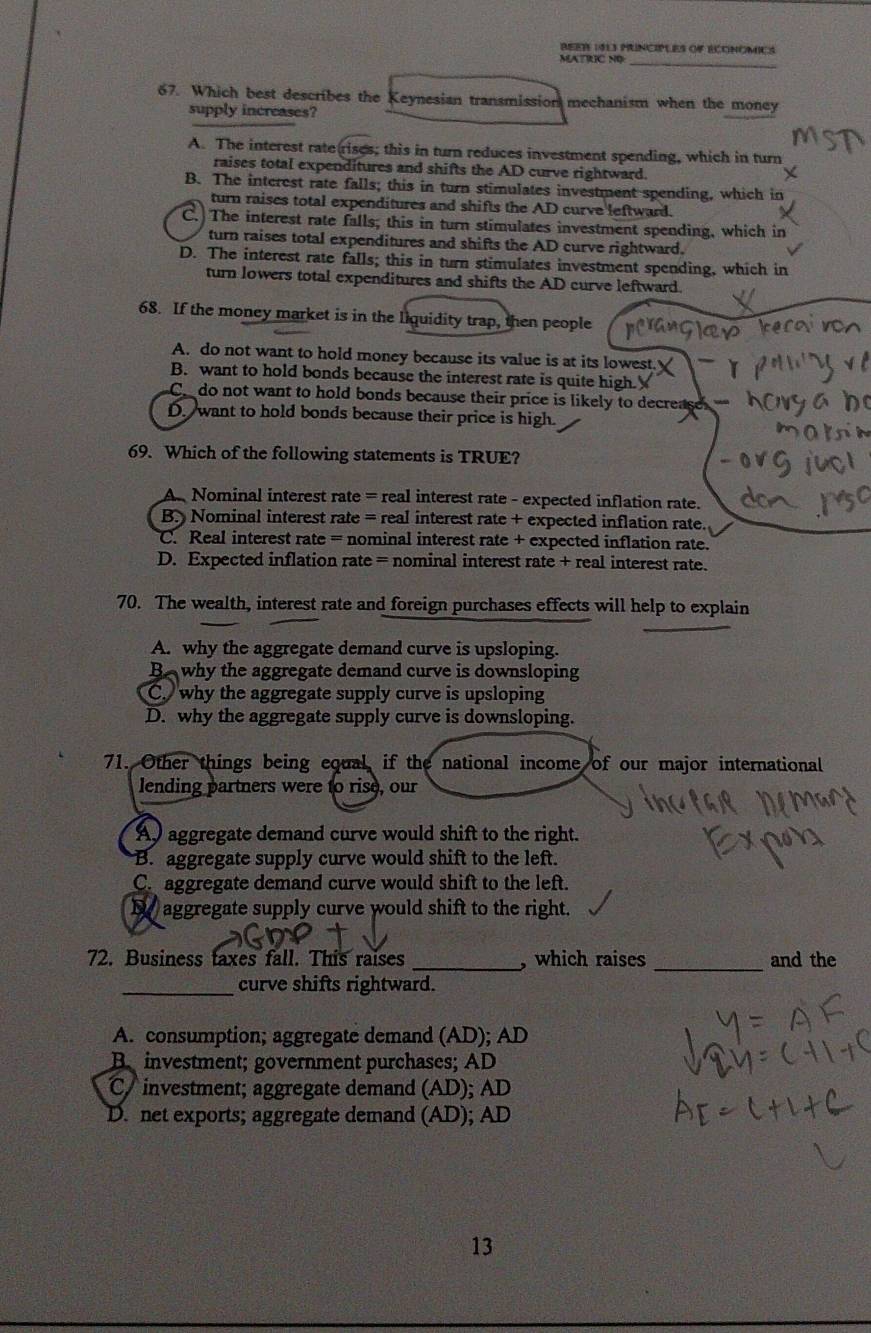 BEEB 1013 PRINCIPLES OF ECONOMICS
MATRIC NO: ____________
67. Which best describes the Keynesian transmission mechanism when the money
supply increases?
A. The interest rate rises; this in turn reduces investment spending, which in turn
raises total expenditures and shifts the AD curve rightward.
B. The interest rate falls; this in turn stimulates investment spending, which in
turn raises total expenditures and shifts the AD curve leftward.
C. The interest rate falls; this in turn stimulates investment spending, which in
turn raises total expenditures and shifts the AD curve rightward.
D. The interest rate falls; this in turn stimulates investment spending, which in
turn lowers total expenditures and shifts the AD curve leftward.
68. If the money market is in the liquidity trap, then people
perangkap
A. do not want to hold money because its value is at its lowest.
B. want to hold bonds because the interest rate is quite high.
C. do not want to hold bonds because their price is likely to decrease.
D. want to hold bonds because their price is high.
69. Which of the following statements is TRUE?
A. Nominal interest rate = real interest rate - expected inflation rate.
B. Nominal interest rate = real interest rate + expected inflation rate.
C. Real interest rate = nominal interest rate + expected inflation rate.
D. Expected inflation rate = nominal interest rate + real interest rate.
70. The wealth, interest rate and foreign purchases effects will help to explain
A. why the aggregate demand curve is upsloping.
B. why the aggregate demand curve is downsloping
C. why the aggregate supply curve is upsloping
D. why the aggregate supply curve is downsloping.
71. Other things being equal, if the national income of our major international
lending partners were to rise, our
A. aggregate demand curve would shift to the right.
B. aggregate supply curve would shift to the left.
C. aggregate demand curve would shift to the left.
D. aggregate supply curve would shift to the right.
GDP
72. Business taxes fall. This raises __________, which raises __________ and the
__________ curve shifts rightward.
A. consumption; aggregate demand (AD); AD
B. investment; government purchases; AD
C. investment; aggregate demand (AD); AD
D. net exports; aggregate demand (AD); AD
13